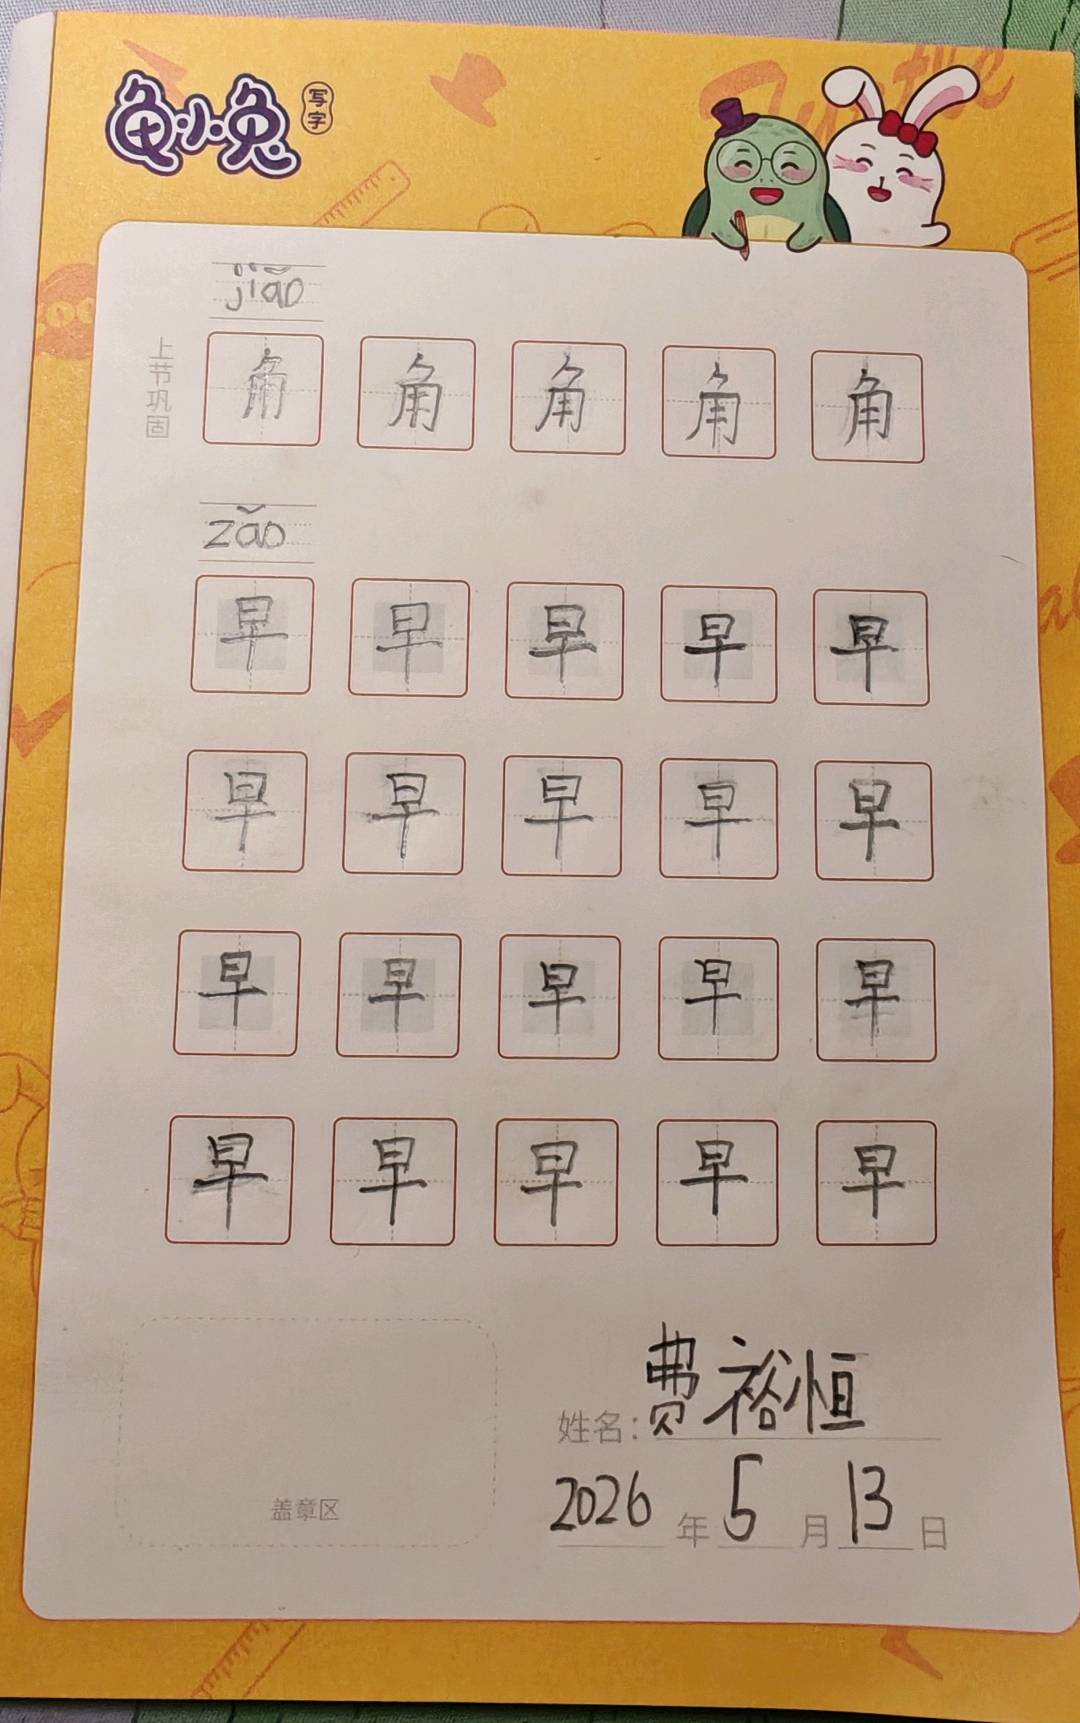 龟小兔 写字
Turtle
jiǎo
上节巩固
角 角 角 角 角
zǎo
早 早 早 早 早
早 早 早 早 早
早 早 早 早 早
早 早 早 早 早
姓名：费裕恒
盖章区
2026 年 5 月 13 日